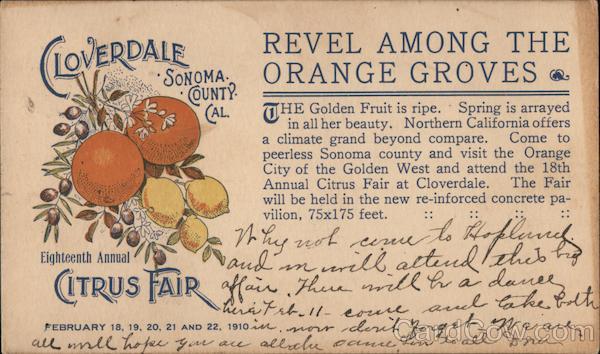 CLOVERDALE
SONOMA
COUNTY
CAL.
Eighteenth Annual
CITRUS FAIR
FEBRUARY 18, 19, 20, 21 AND 22, 1910
REVEL AMONG THE
ORANGE GROVES
THE Golden Fruit is ripe. Spring is arrayed
in all her beauty. Northern California offers
a climate grand beyond compare. Come to
peerless Sonoma county and visit the Orange
City of the Golden West and attend the 18th
Annual Citrus Fair at Cloverdale. The Fair
will be held in the new re-inforced concrete pa-
vilion, 75x175 feet. :: :: :: ::
Why not come to Hopland
and will attend this big
affair. There will be a dance
here Feb. 11 - come and take both
in. now don't forget. We are
all well hope you are all the same.
CardCow.com